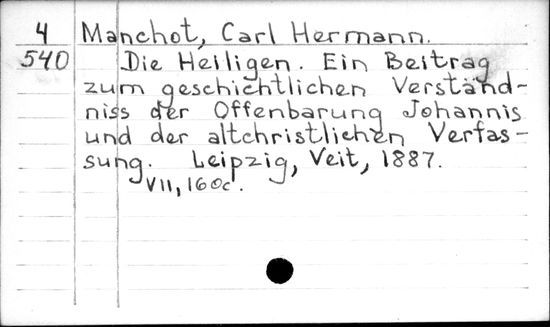 4 Manchot, Carl Hermann.
540 Die Heiligen. Ein Beitrag
zum geschichtlichen Verständ-
niss der Offenbarung Johannis
und der altchristlichen Verfas-
sung. Leipzig, Veit, 1887.
VII, 160c.